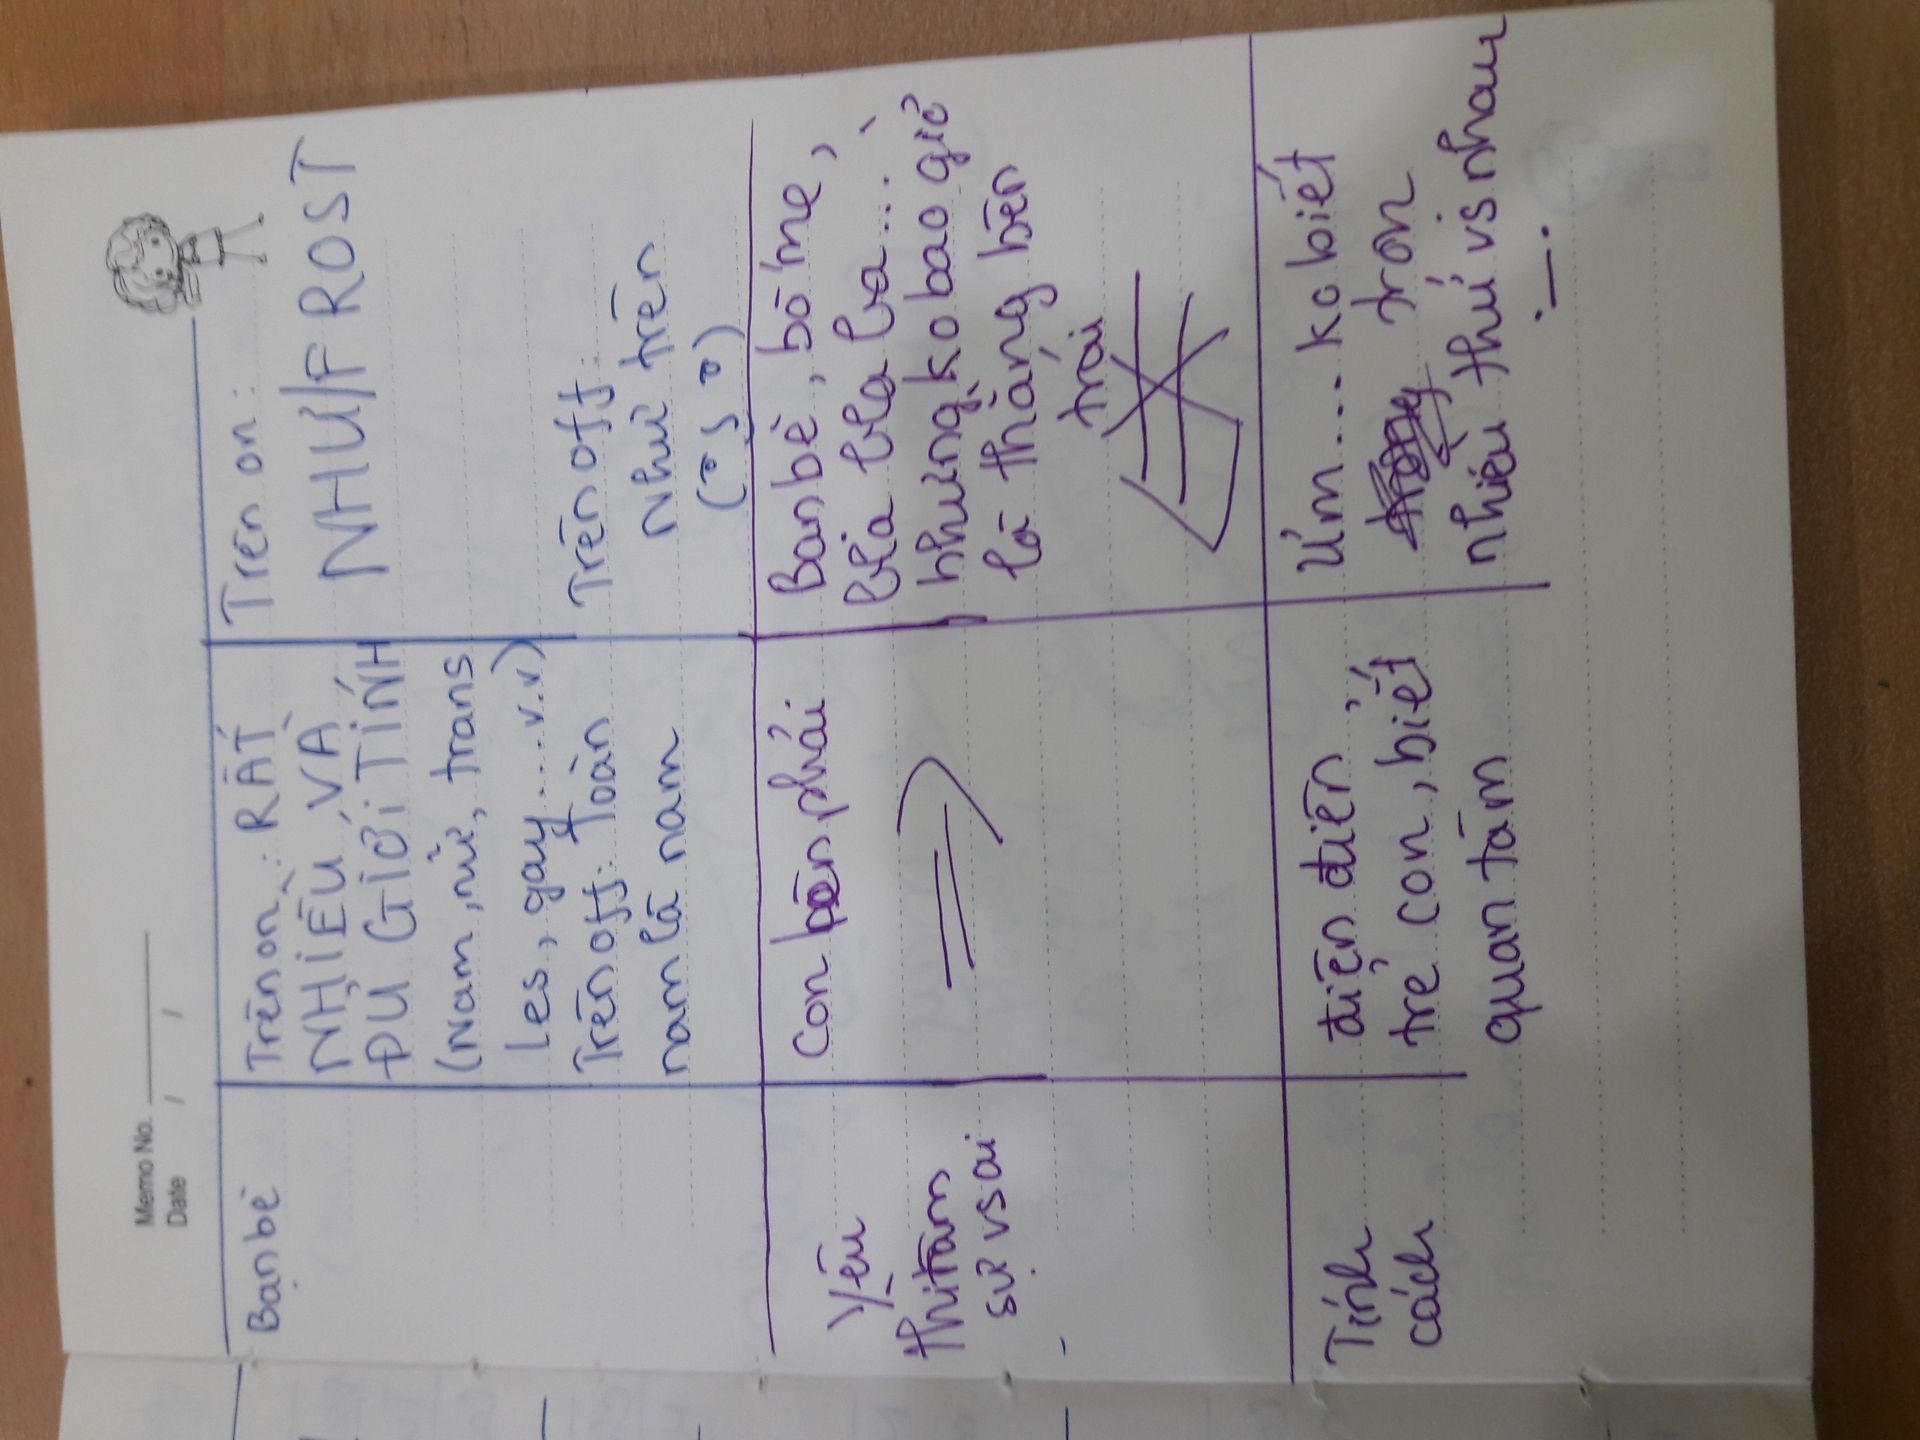 Memo No.
Date / /
Bạn bè
Trên on: RẤT
NHIỀU VÀ
ĐỦ GIỚI TÍNH
(Nam, nữ, trans
Les, gay....v.v)
Trên off: Toàn
nam là nam
Trên on:
NHƯ FROST
Trên off:
Như trên
Yêu
thì tâm
sự vs ai
Con bên phải
Bạn bè, bố mẹ,
bla bla bla...
nhưng ko bao giờ
là thằng bên
trái
Tính
cách
điên điên,
trẻ con, biết
quan tâm
Ừm... ko biết
trơn
nhiều thứ vs nhau